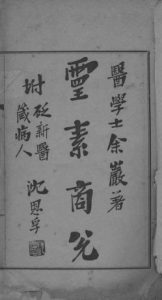 醫學士余巖著
靈素商兌
附砭新醫
箴病人
沈恩孚